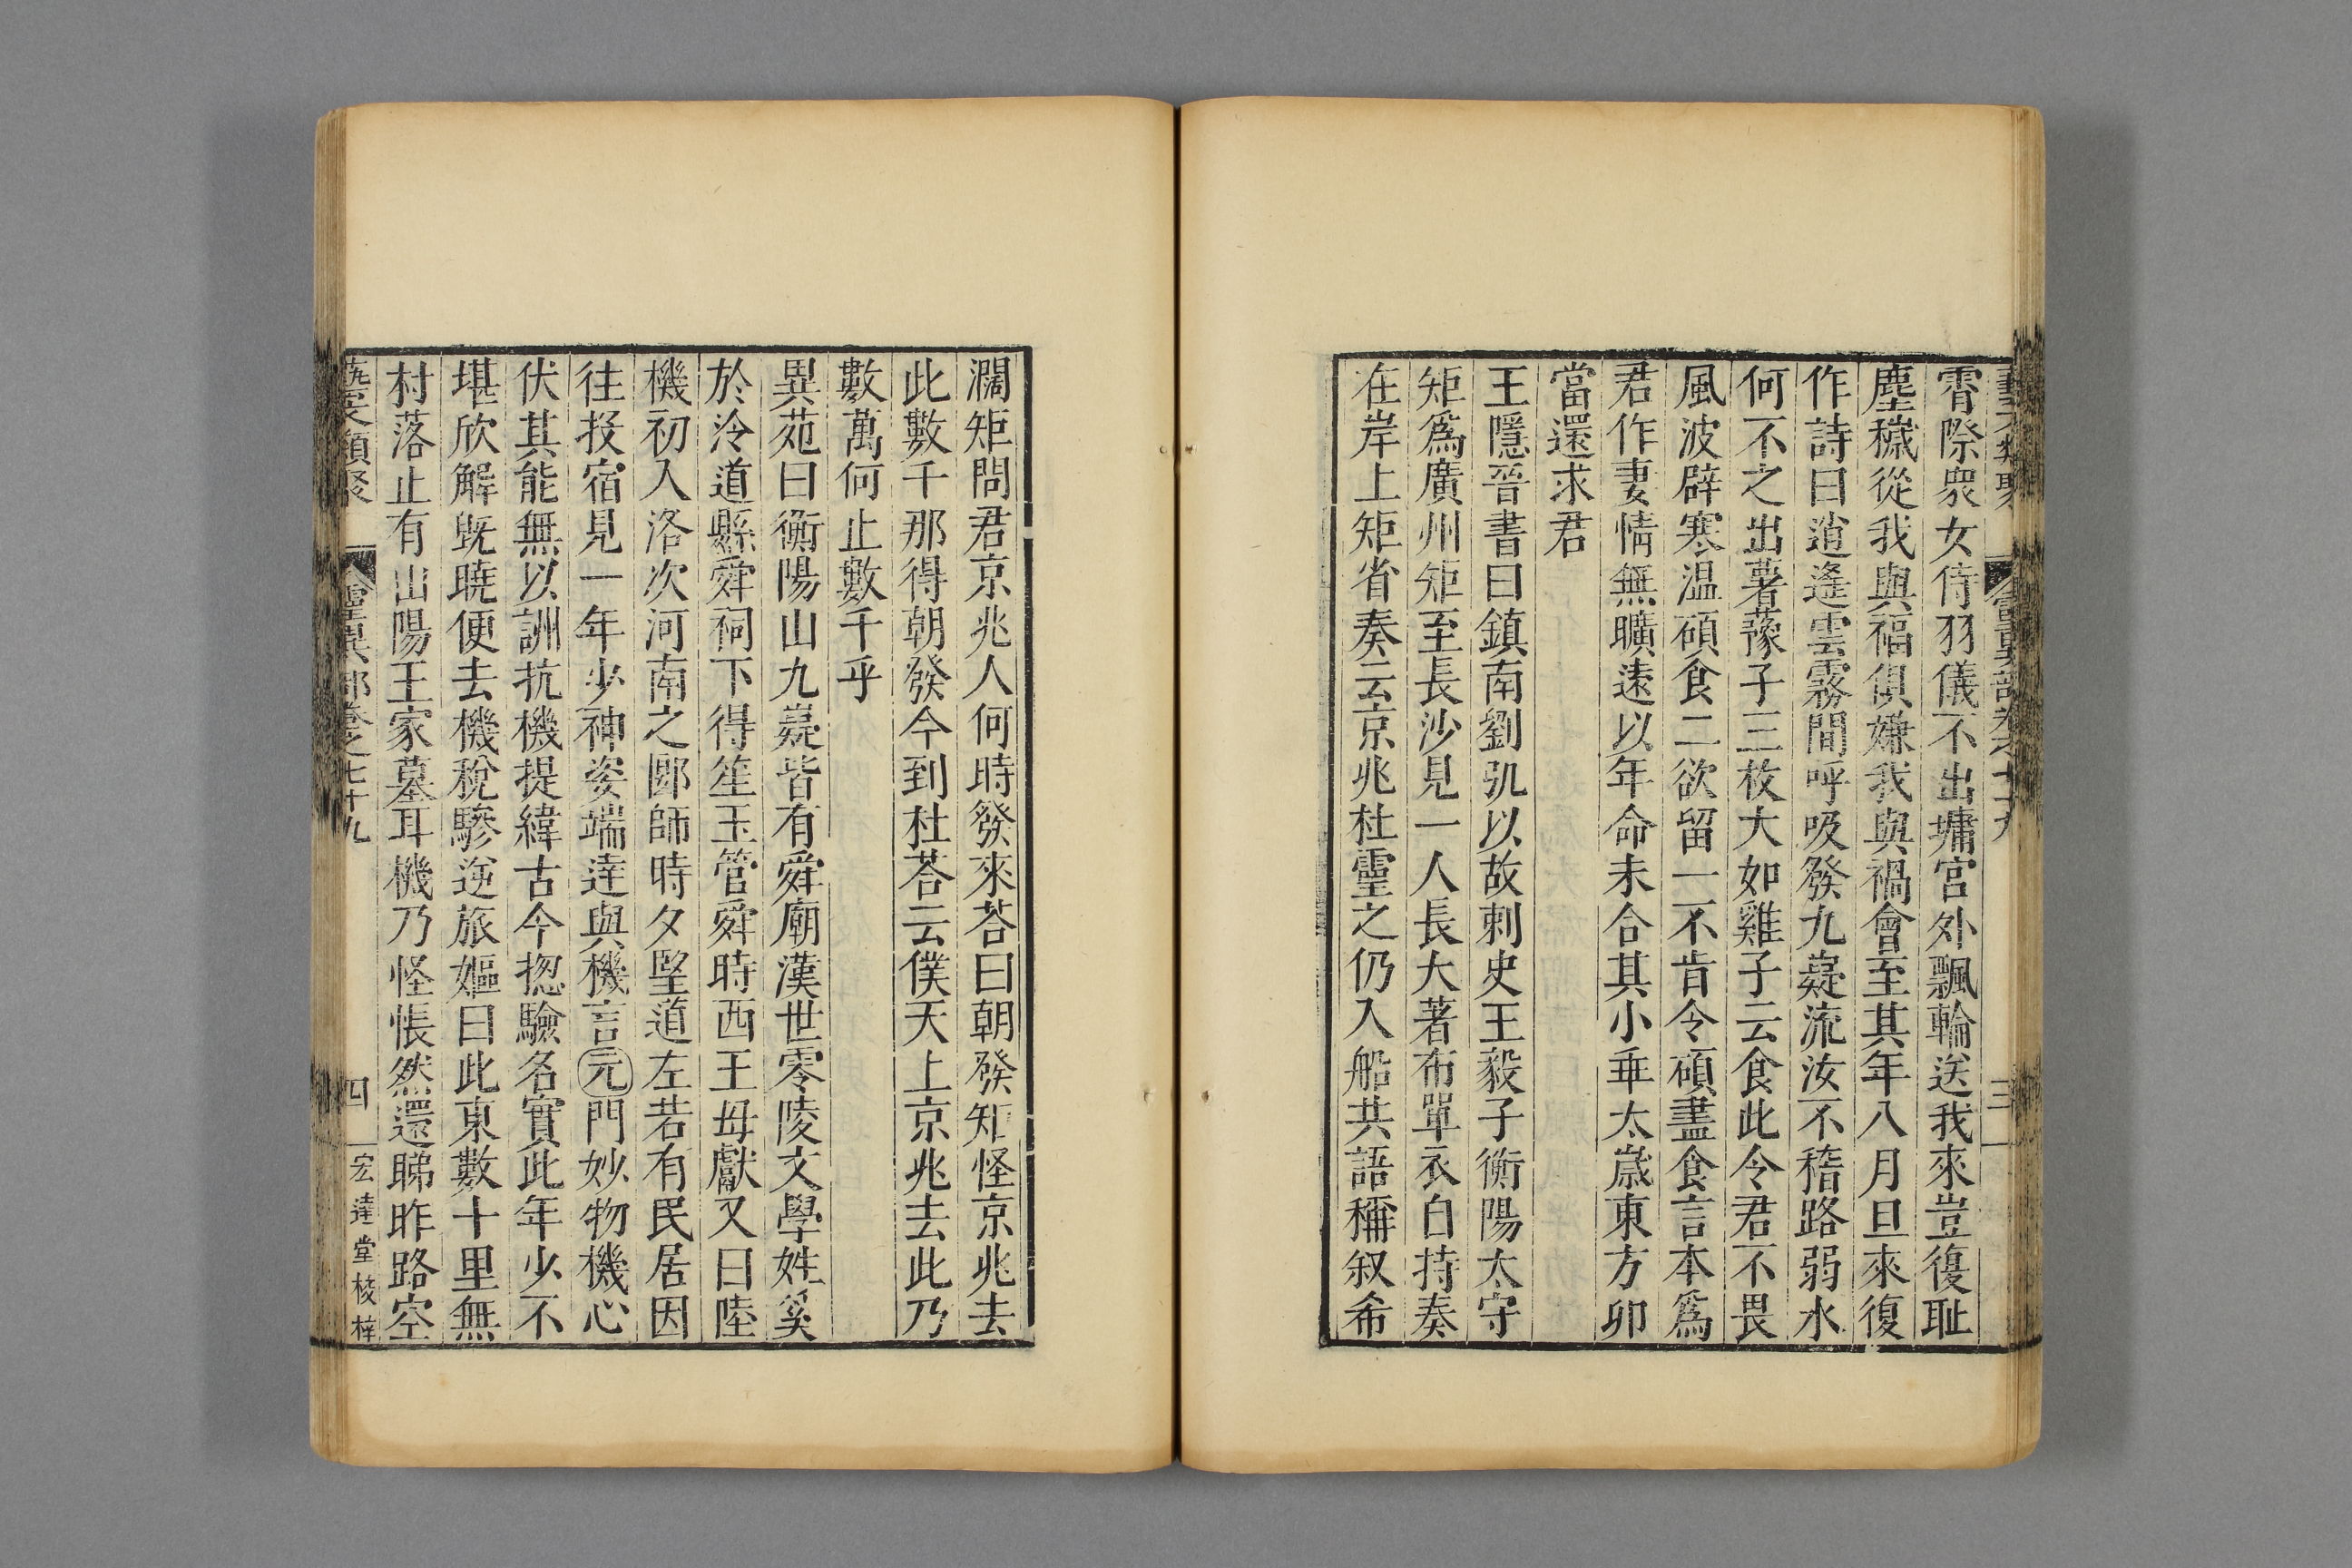 藝文類聚 靈異部卷之七十九 三
霄際衆女侍羽儀不出墉宮外飄輪送我來豈復耻
塵穢從我與福俱嫌我與禍會至其年八月旦來復
作詩曰逍遙雲霧間呼吸發九嶷流汝不稽路弱水
何不之出薯蕷子三枚大如雞子云食此令君不畏
風波辟寒温碩食二欲留一不肯令碩盡食言本爲
君作妻情無曠遠以年命未合其小乖太歲東方卯
當還求君
王隱晉書曰鎮南劉弘以故刺史王毅子衡陽太守
矩爲廣州矩至長沙見一人長大著布單衣白持奏
在岸上矩省奏云京兆杜靈之仍入船共語稱叙希
濶矩問君京兆人何時發來荅曰朝發矩怪京兆去
此數千那得朝發今到杜荅云僕天上京兆去此乃
數萬何止數千乎
異苑曰衡陽山九嶷皆有舜廟漢世零陵文學姓奚
於泠道縣舜祠下得笙玉管舜時西王母獻又曰陸
機初入洛次河南之郾師時夕朢道左若有民居因
往投宿見一年少神姿端達與機言元門妙物機心
伏其能無以詶抗機提緯古今揔驗名實此年少不
堪欣解旣曉便去機稅驂逆旅嫗曰此東數十里無
村落止有山陽王家墓耳機乃怪悵然還睇昨路空
藝文類聚 靈異部卷之七十九 四 宏達堂梭梓